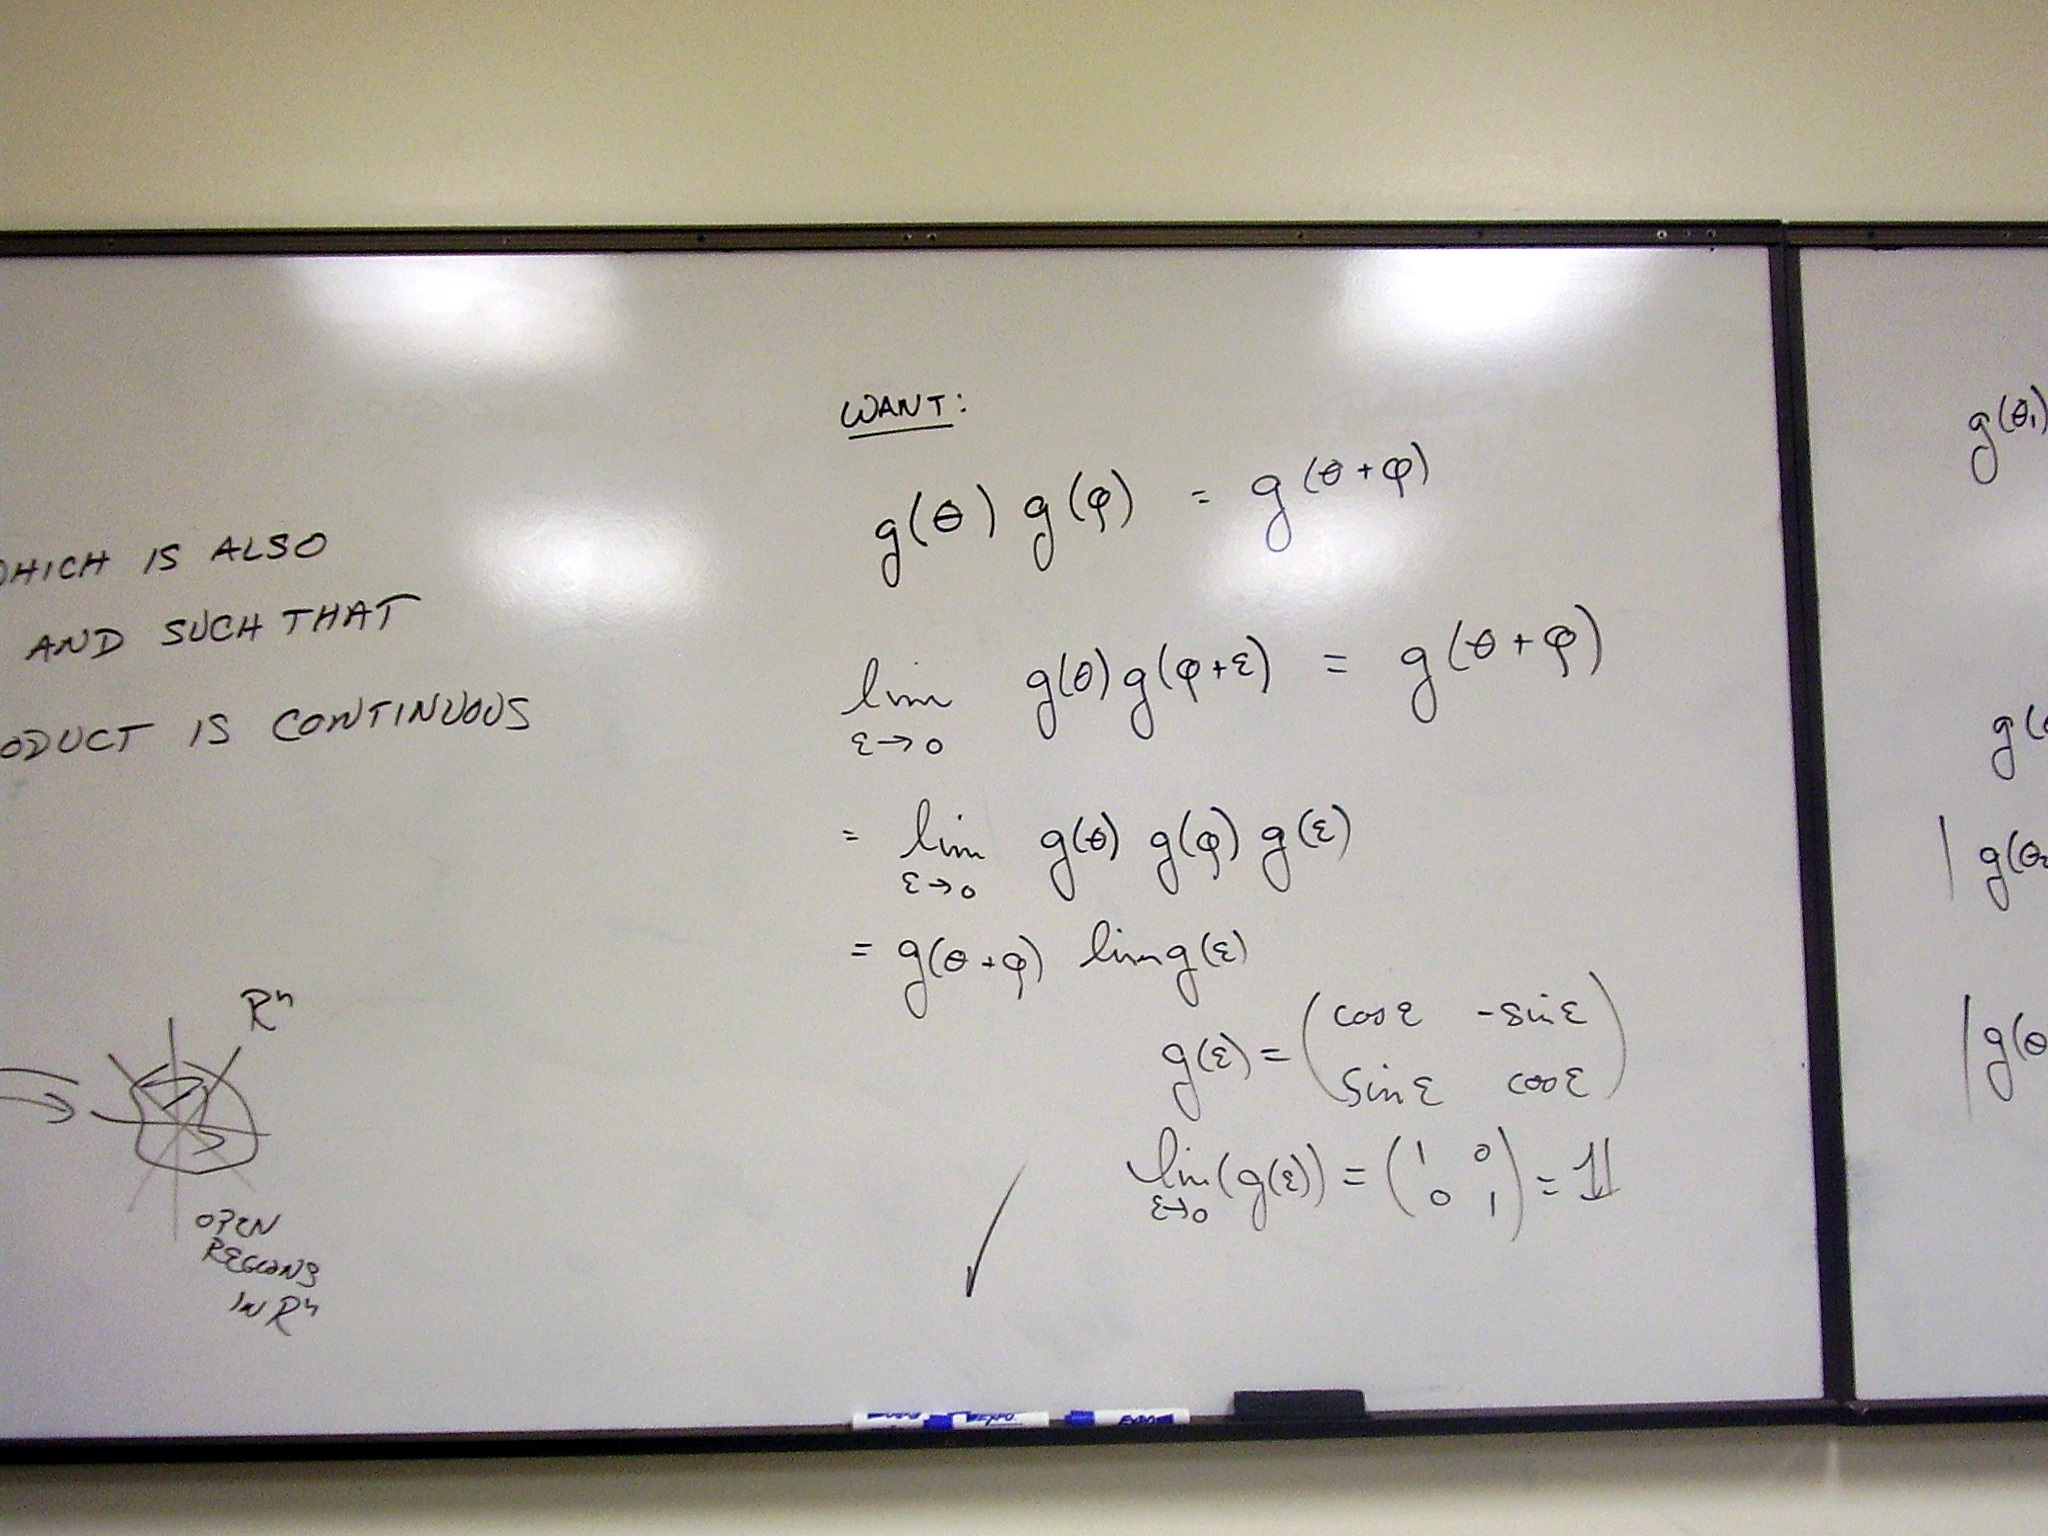 WHICH IS ALSO
AND SUCH THAT
ODUCT IS CONTINUOUS
Rⁿ
OPEN
REGIONS
IN Rⁿ
WANT:
g(θ) g(φ) = g(θ+φ)
lim g(θ) g(φ+ε) = g(θ+φ)
ε→0
= lim g(θ) g(φ) g(ε)
ε→0
= g(θ+φ) lim g(ε)
g(ε) = (cosε -sinε
sinε cosε)
lim (g(ε)) = (1 0
ε→0 0 1) = 𝟙
g(θ₁)
g(
| g(θ₂
| g(θ
EXPO
EXPO